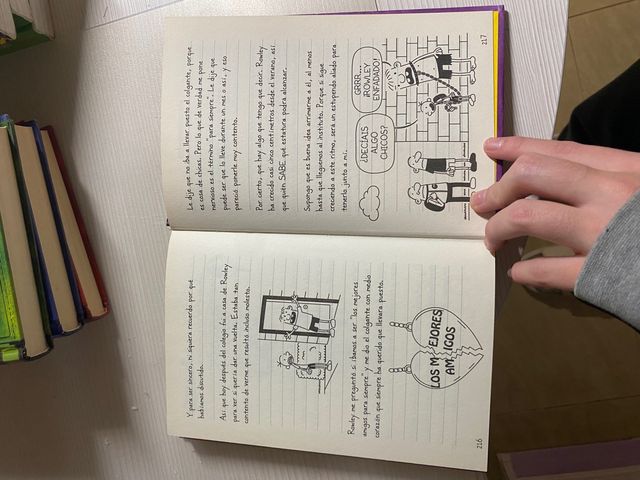 Y para ser sincero, ni siquiera recuerdo por qué
habíamos discutido.
Así que hoy después del colegio fui a casa de Rowley
para ver si quería dar una vuelta. Estaba tan
contento de verme que resultó incluso molesto.
Rowley me preguntó si íbamos a ser "los mejores
amigos para siempre" y me dio el colgante con medio
corazón que siempre ha querido que llevara puesto.
LOS MEJORES
AMIGOS
216
Le dije que no iba a llevar puesto el colgante, porque
es cosa de chicas. Pero lo que de verdad me pone
nervioso es el término "para siempre". Le dije que
puede ser que lo lleve durante un mes o así, y eso
pareció ponerle muy contento.
Por cierto, que hay algo que tengo que decir. Rowley
ha crecido casi cinco centímetros desde el verano, así
que quién SABE qué estatura podrá alcanzar.
Supongo que es buena idea arrimarme a él, al menos
hasta que lleguemos al instituto. Porque si sigue
creciendo a este ritmo, será un estupendo aliado para
tenerlo junto a mí.
GRRR...
¡ROWLEY
ENFADADO!
¿DECÍAIS
ALGO
CHICOS?
217